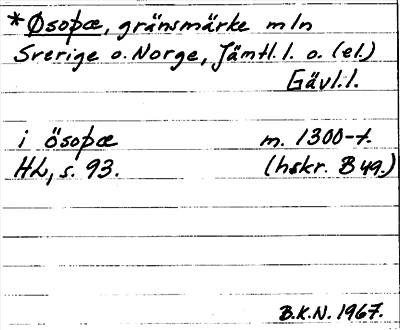 *Øsoþæ, gränsmärke mln
Sverige o. Norge, Jämtl. l. o. (el.)
Gävl. l.
i ösoþæ m. 1300-t.
HL, s. 93. (hskr. B 49.)
B.K.N. 1967.